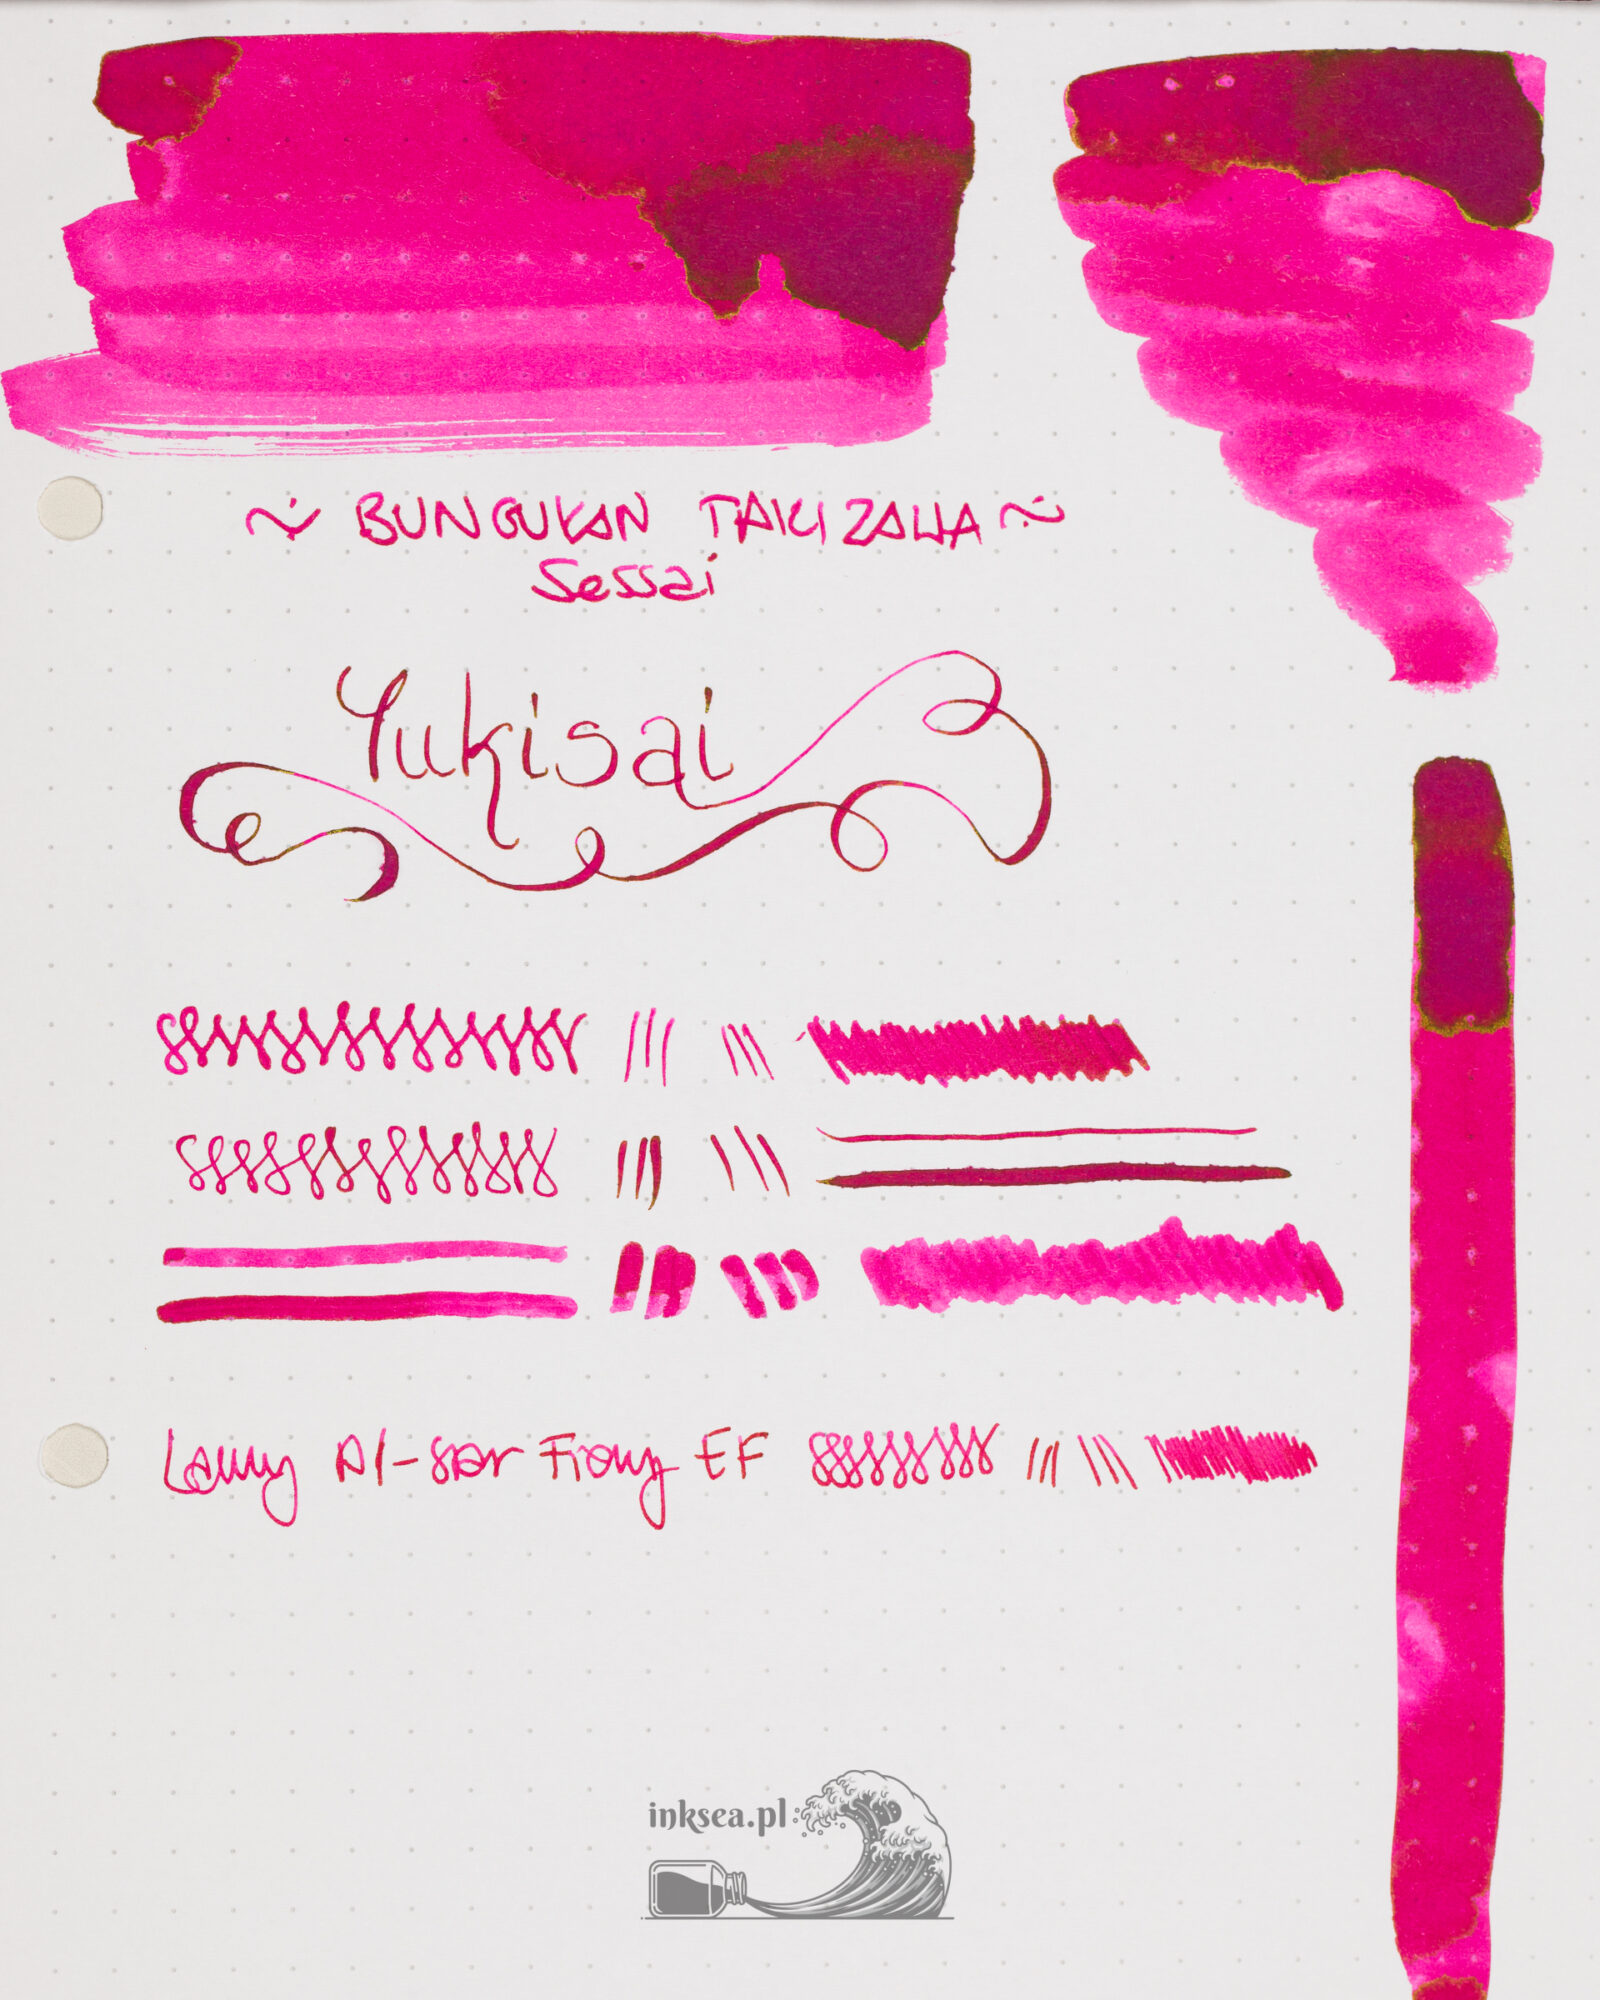 ~ BUNGUKAN TAKIZAWA ~
Sessai
Yukisai
Lamy Al-star Fiony EF
inksea.pl